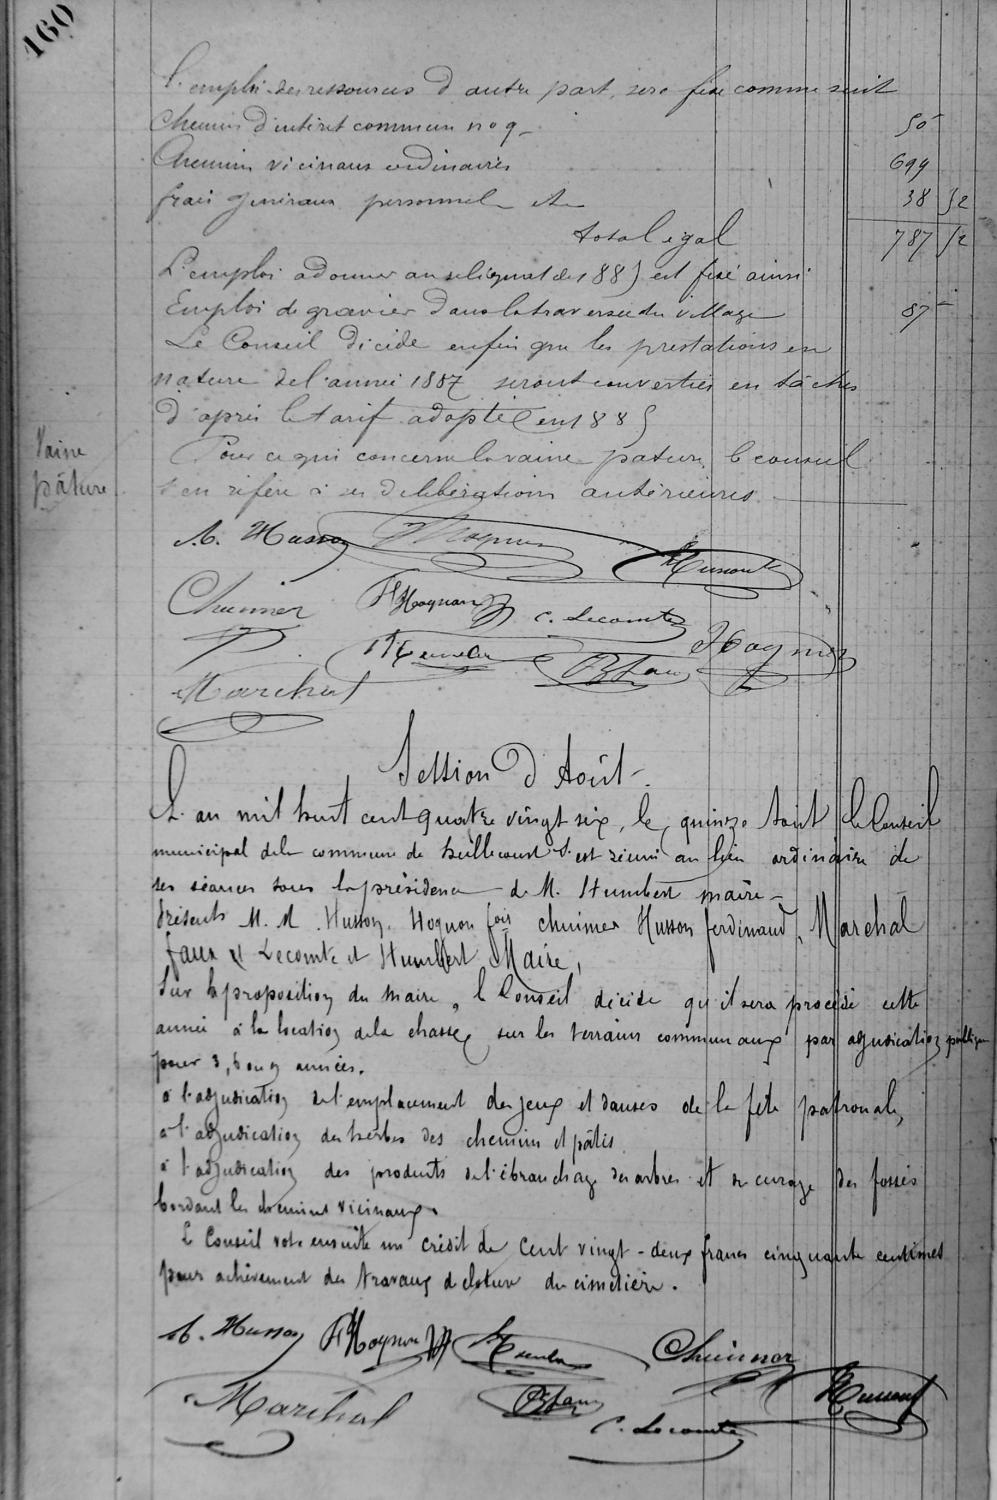 160
L'emploi des ressources d'autre part, sera fixé comme suit
Chemin d'intérêt commun no 9 50
Chemins vicinaux ordinaires 699
frais généraux personnel etc 38 52
total égal 787 52
L'emploi à donner au reliquat de 1885 est fixé ainsi
Emploi de gravier dans la traversée du village 87
Le Conseil décide enfin que les prestations en
nature de l'année 1887 seront converties en tâches
d'après le tarif adopté en 1885
Vaine
pâture
Pour ce qui concerne la vaine pature, le conseil
s'en réfère à ses délibérations antérieures
A. Husson Hognon Husson
Chuiner F Hognon C. Lecomte Hognon
Humbert Faux
Marchal
Session d'Août
L'an mil huit cent quatre vingt six, le quinze Août le Conseil
municipal de la commune de s'est réuni au lieu ordinaire de
ses séances sous la présidence de M. Humbert maire
Présents M. M. Husson, Hognon fois Chuiner Husson ferdinand, Marchal
faux Lecomte et Humbert Maire,
Sur la proposition du maire, le Conseil décide qu'il sera procédé cette
année à la location de la chasse sur les terrains communaux par adjudication publique
pour 3, 6 ou 9 années.
à l'adjudication de l'emplacement des jeux et danses de la fête patronale,
à l'adjudication des herbes des chemins et pâtis
à l'adjudication des produits de l'ébranchage des arbres et du curage des fossés
bordant les chemins vicinaux.
Le Conseil vote ensuite un crédit de Cent vingt-deux francs cinquante centimes
pour achèvement des travaux de cloture du cimetière.
A. Husson F Hognon Humbert Chuiner
Marchal Faux C. Lecomte Husson